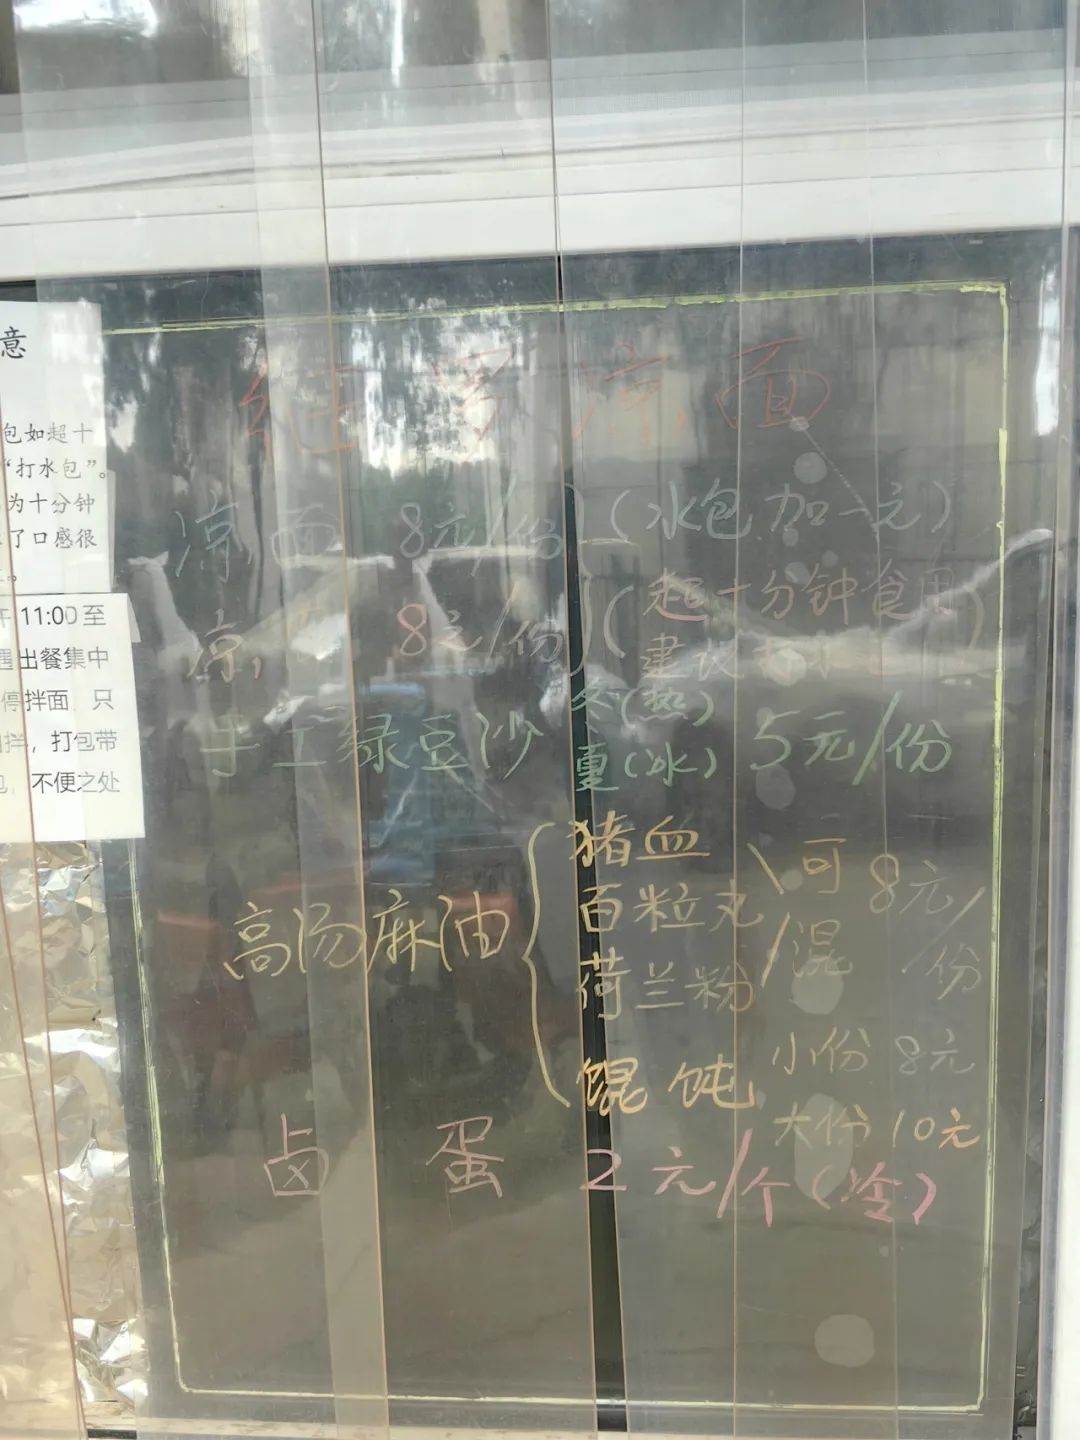 意
包如超十
“打水包”。
为十分钟
了口感很
。
11:00至
出餐集中
停拌面 只
拌，打包带
包，不便之处
红 凉面
凉面 8元/份 (水包加一元)
凉 8元/份 (超十分钟食用
建议
手工绿豆沙 冬(热) 夏(冰) 5元/份
高汤麻油
猪血
百粒丸
荷兰粉
可混 8元/份
馄饨 小份 8元
大份 10元
卤蛋 2元/个(冷)